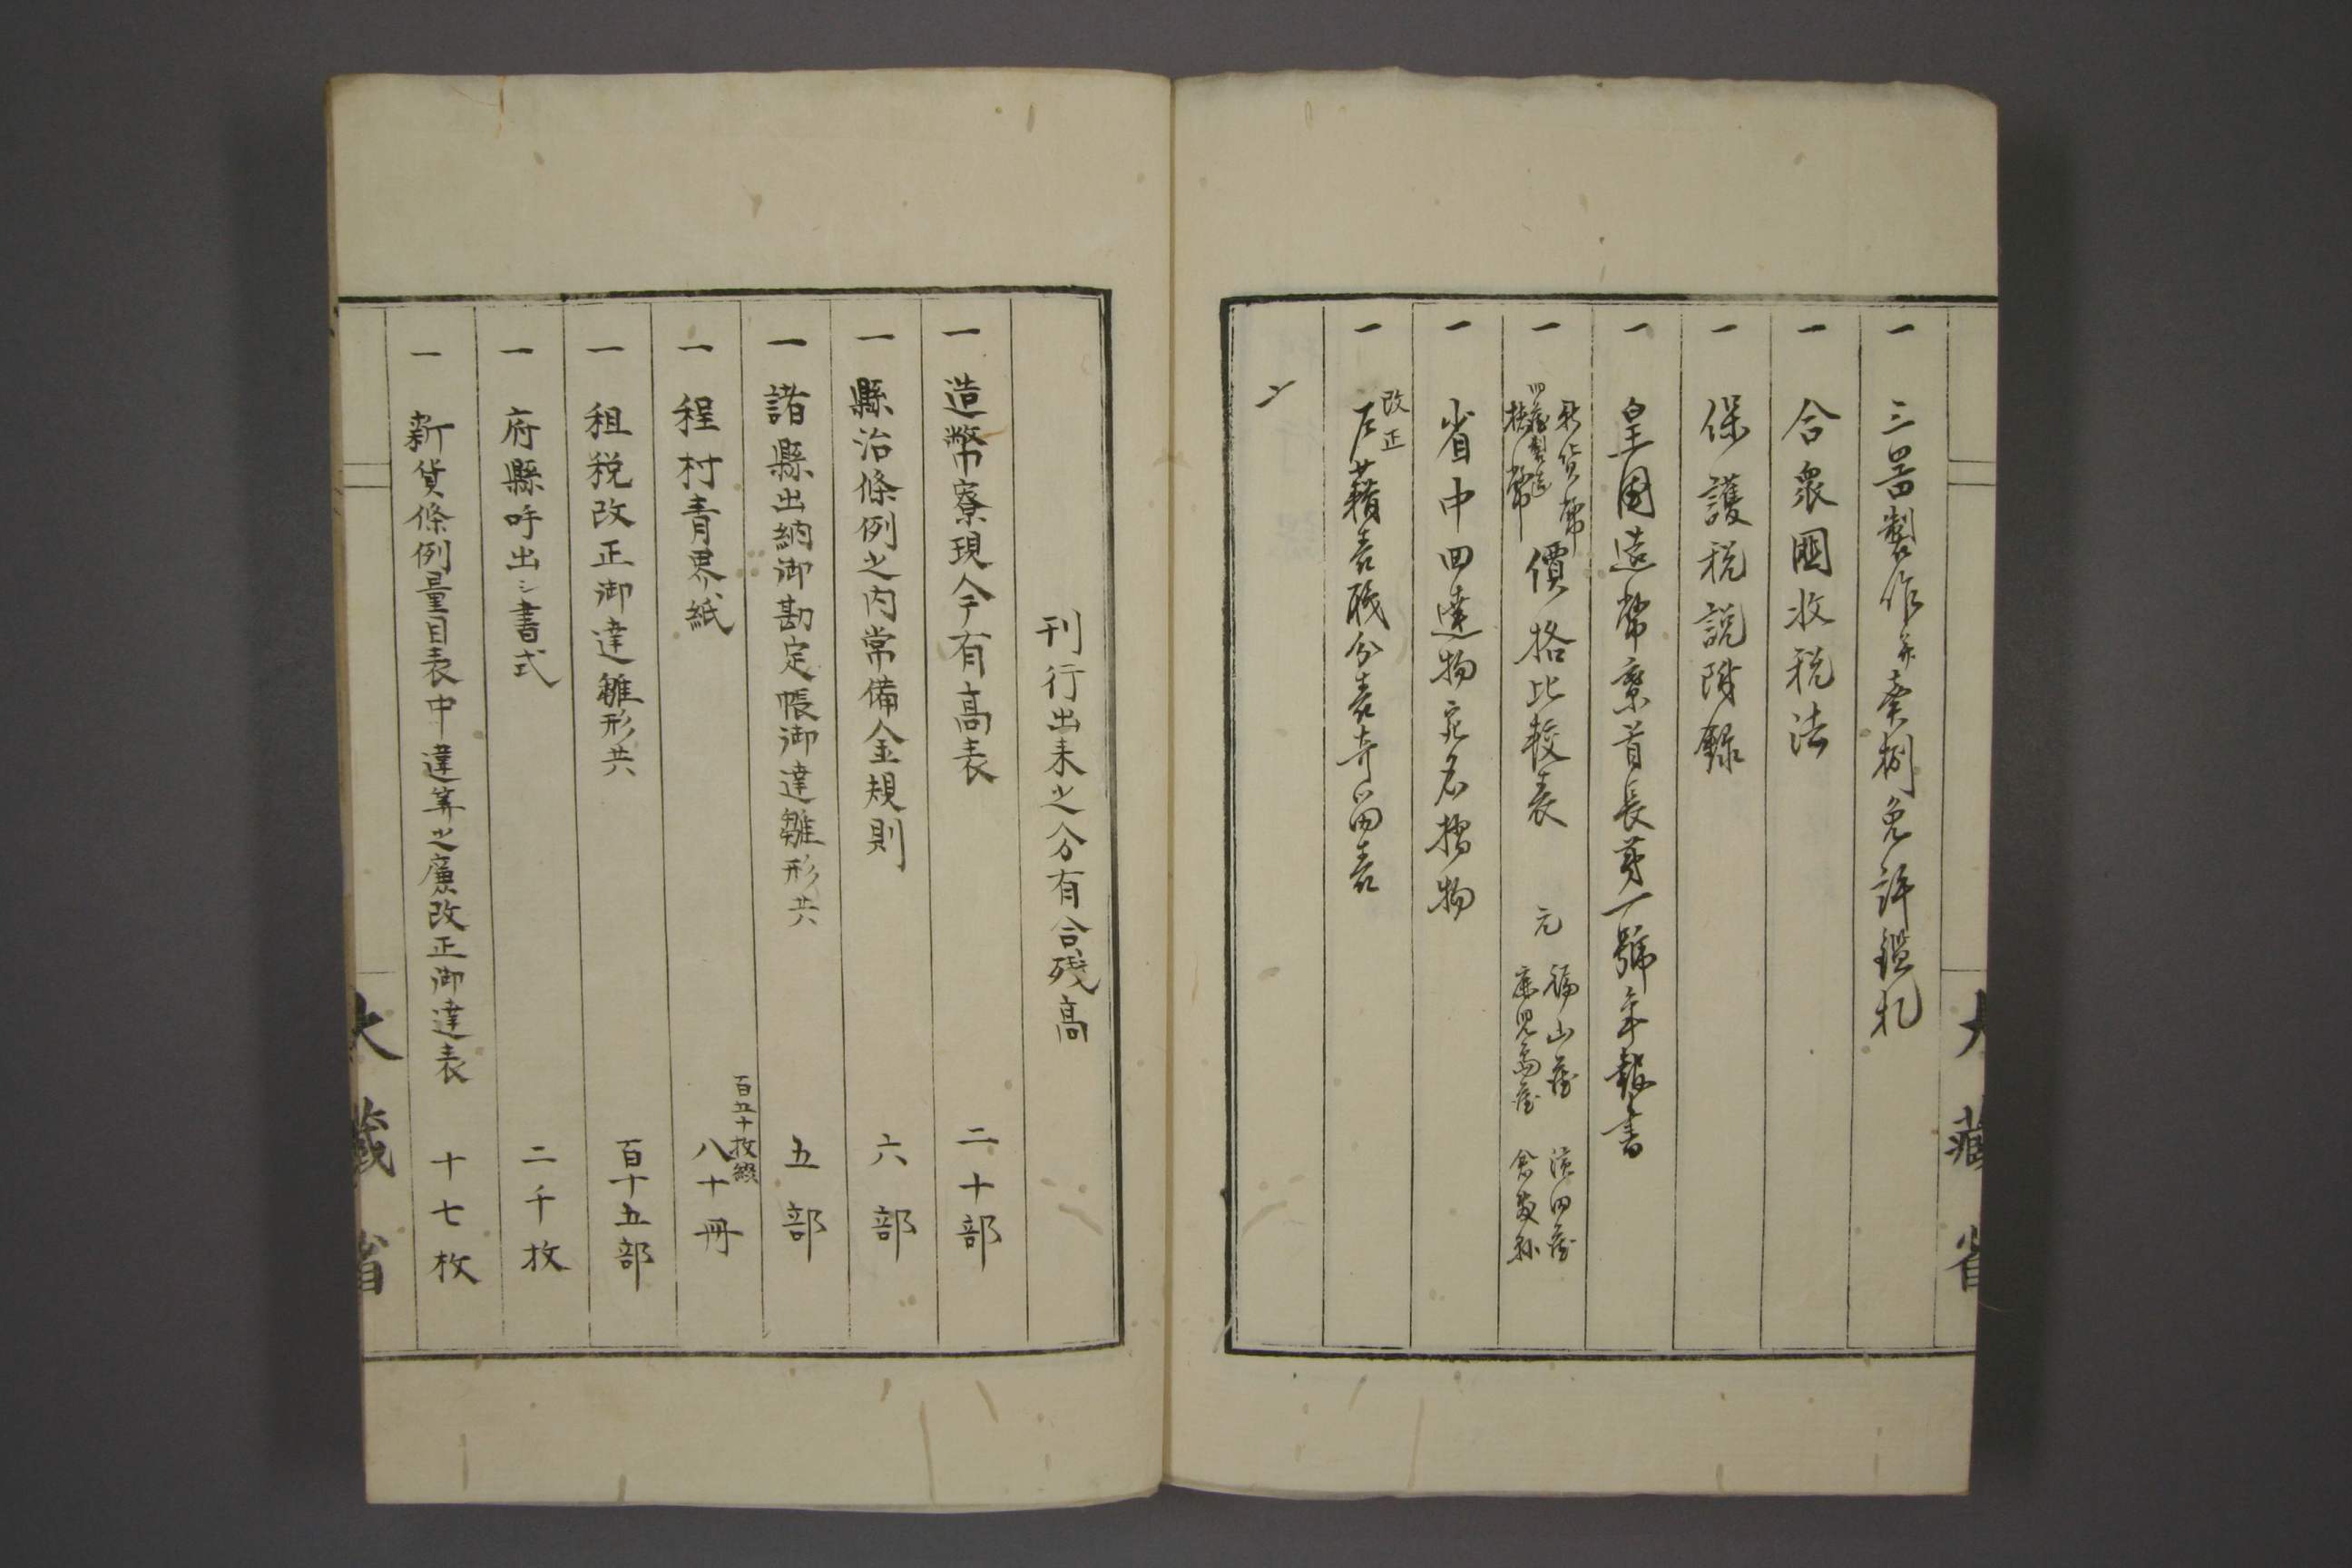 一 三器製作并賣捌免許鑑札
一 合衆國收税法
一 保護税説附録
一 皇國造幣寮首長第一號年報書
一 新貨幣
舊藩製造
楮幣
價格比較表 元 福山藩 濱田藩
鹿児島藩 倉敷縣
一 省中回達物宛名摺物
一 改正
戸籍表職分表寄留表
〆
大藏省
刊行出来之分有合残高
一 造幣寮現今有高表 二十部
一 縣治條例之内常備金規則 六部
一 諸縣出納御勘定帳御達雛形共 五部
一 程村青界紙 百五十枚綴
八十冊
一 租税改正御達雛形共 百十五部
一 府縣呼出シ書式 二千枚
一 新貨條例量目表中違算之廉改正御達表 十七枚
大藏省